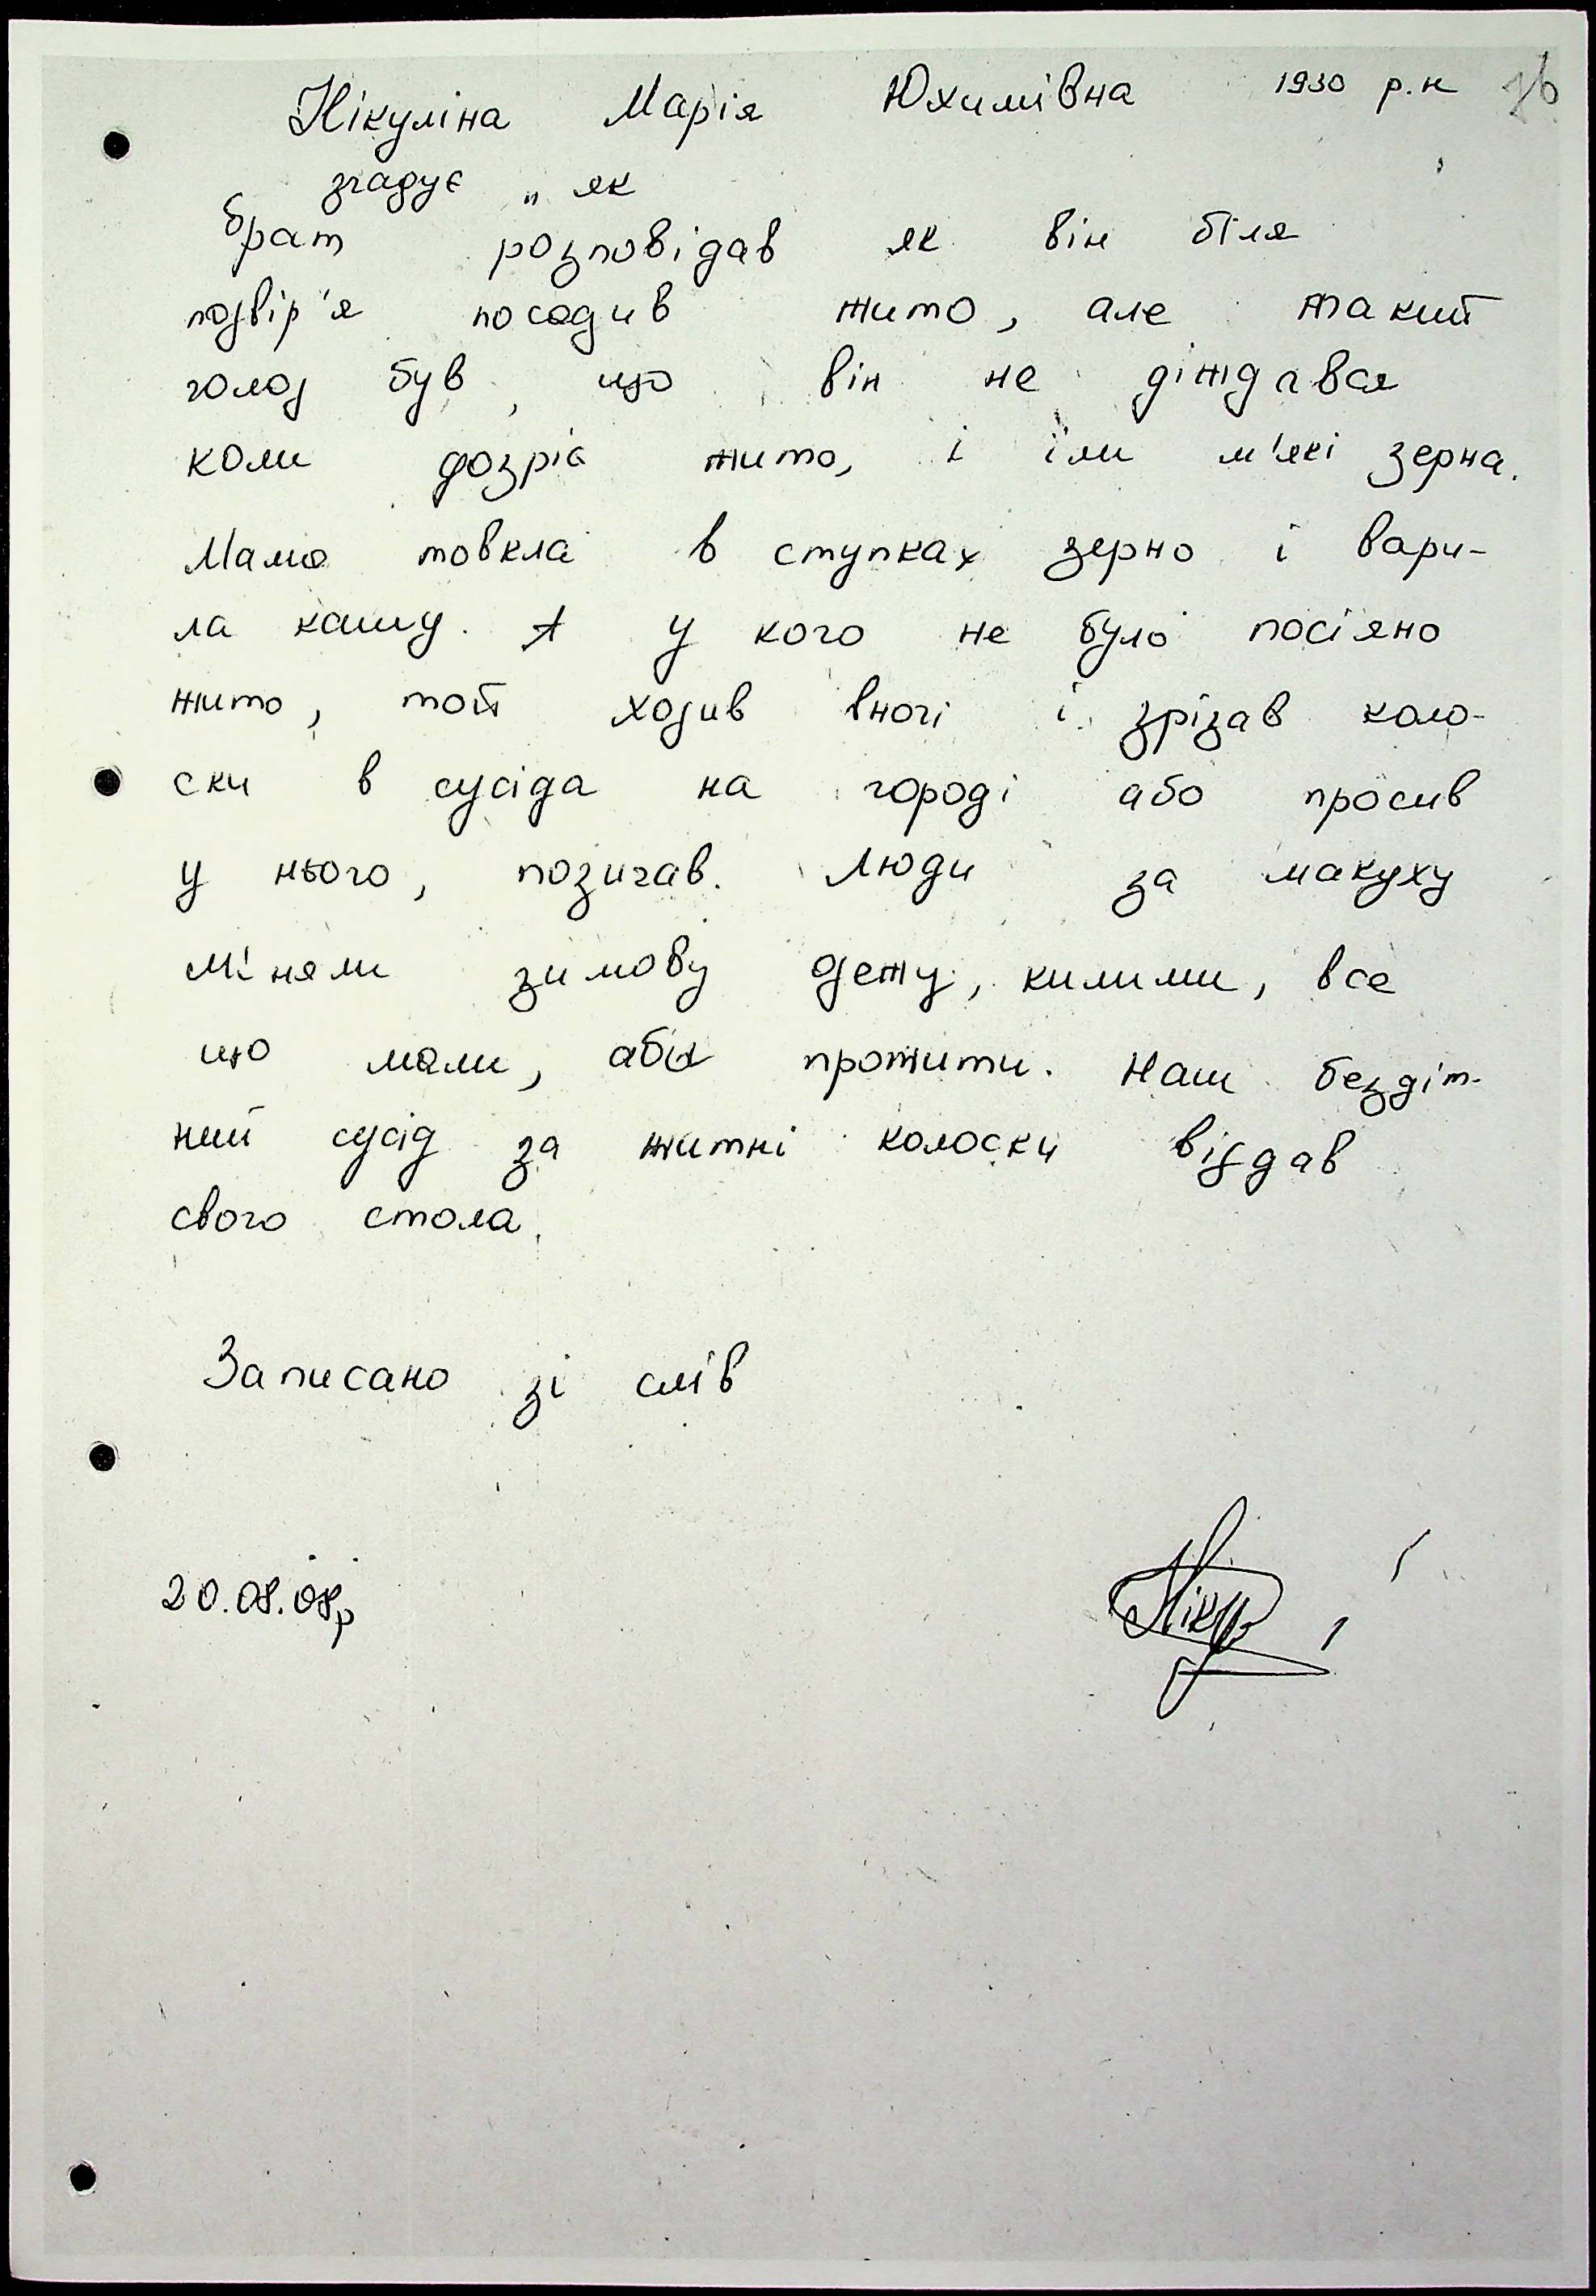 Нікуліна Марія Юхимівна 1930 р.н 76
згадує „ як
брат розповідав як він біля
подвір'я посадив жито, але такий
голод був, що він не діждався
коли дозріє жито, і їли м'які зерна.
Мама товкла в ступках зерно і вари-
ла кашу. А у кого не було посіяно
жито, той ходив вночі і зрізав коло-
ски в сусіда на городі або просив
у нього, позичав. Люди за макуху
міняли зимову дежу, килими, все
що мали, аби прожити. Наш бездіт-
ний сусід за житні колоски віддав
свого стола.
Записано зі слів
20.08.08р